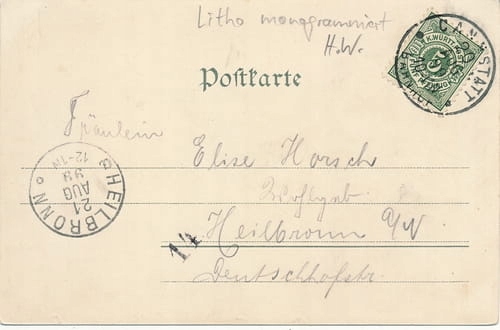 Litho monogrammiert
H.W.
CANNSTATT
K. WÜRTT. POST
5
Postkarte
Fräulein
Elise Horsch
Wohlgeb
Heilbronn a/N
Deutschhofstr.
HEILBRONN
21
AUG
99
12-1N
14